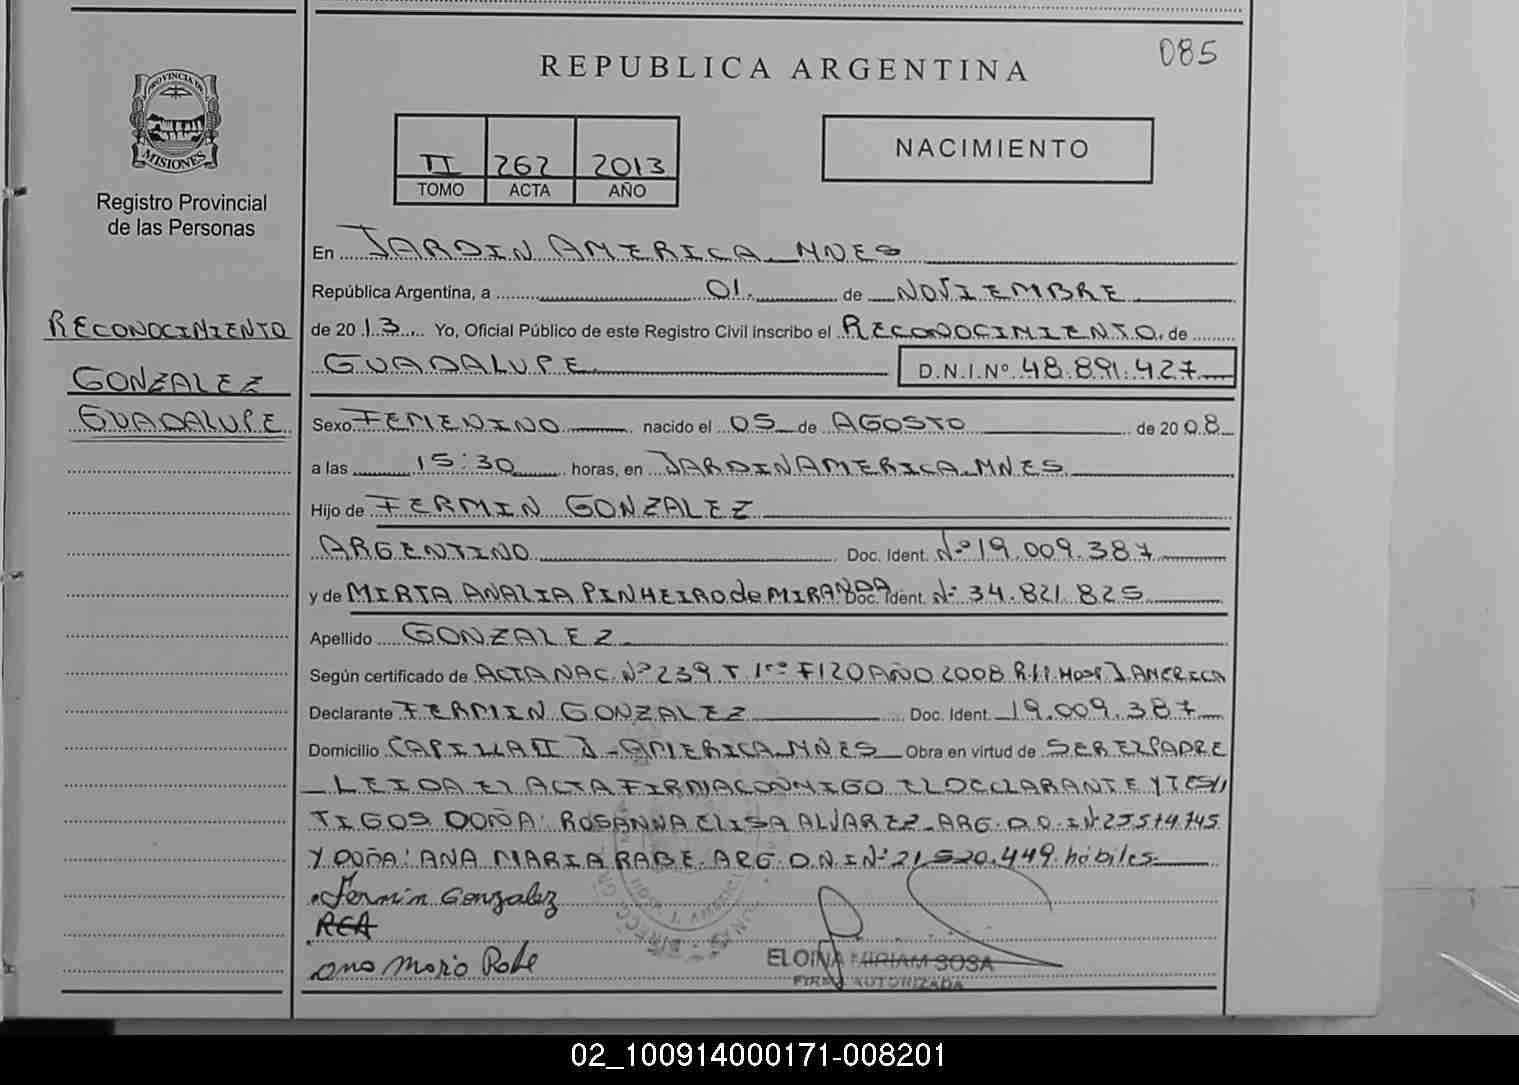 085
REPUBLICA ARGENTINA
PROVINCIA DE
MISIONES
Registro Provincial
de las Personas
II 262 2013
TOMO ACTA AÑO
NACIMIENTO
En JARDIN AMERICA MNES
República Argentina, a 01 de NOVIEMBRE
RECONOCIMIENTO
GONZALEZ
GUADALUPE
de 2013 Yo, Oficial Público de este Registro Civil inscribo el RECONOCIMIENTO de
GUADALUPE D.N.I.Nº 48.891.427
Sexo FEMENINO nacido el 05 de AGOSTO de 2008
a las 15:30 horas, en JARDIN AMERICA MNES
Hijo de FERMIN GONZALEZ
ARGENTINO Doc. Ident. Nº 19.009.387
y de MIRTA ANALIA PINHEIRO de MIRANDA Doc. Ident. Nº 34.821.825
Apellido GONZALEZ
Según certificado de ACTA NAC. Nº 239 T 1ro F120 AÑO 2008 R.P.P. HOSP J. AMERICA
Declarante FERMIN GONZALEZ Doc. Ident. 19.009.387
Domicilio CAPILLA II J-AMERICA MNES Obra en virtud de SER EL PADRE
LEIDA EL ACTA FIRMA CONMIGO EL DECLARANTE Y TES/
TIGOS DOÑA: ROSANNA ELISA ALVAREZ ARG. D.N.I Nº 25574745
Y DOÑA: ANA MARIA RABE ARG. D.N.I Nº 21.520.449 hábiles
Fermin Gonzalez
REA
Ana Maria Rabe
ELOINA MIRIAM SOSA
FIRMA AUTORIZADA
02_100914000171-008201